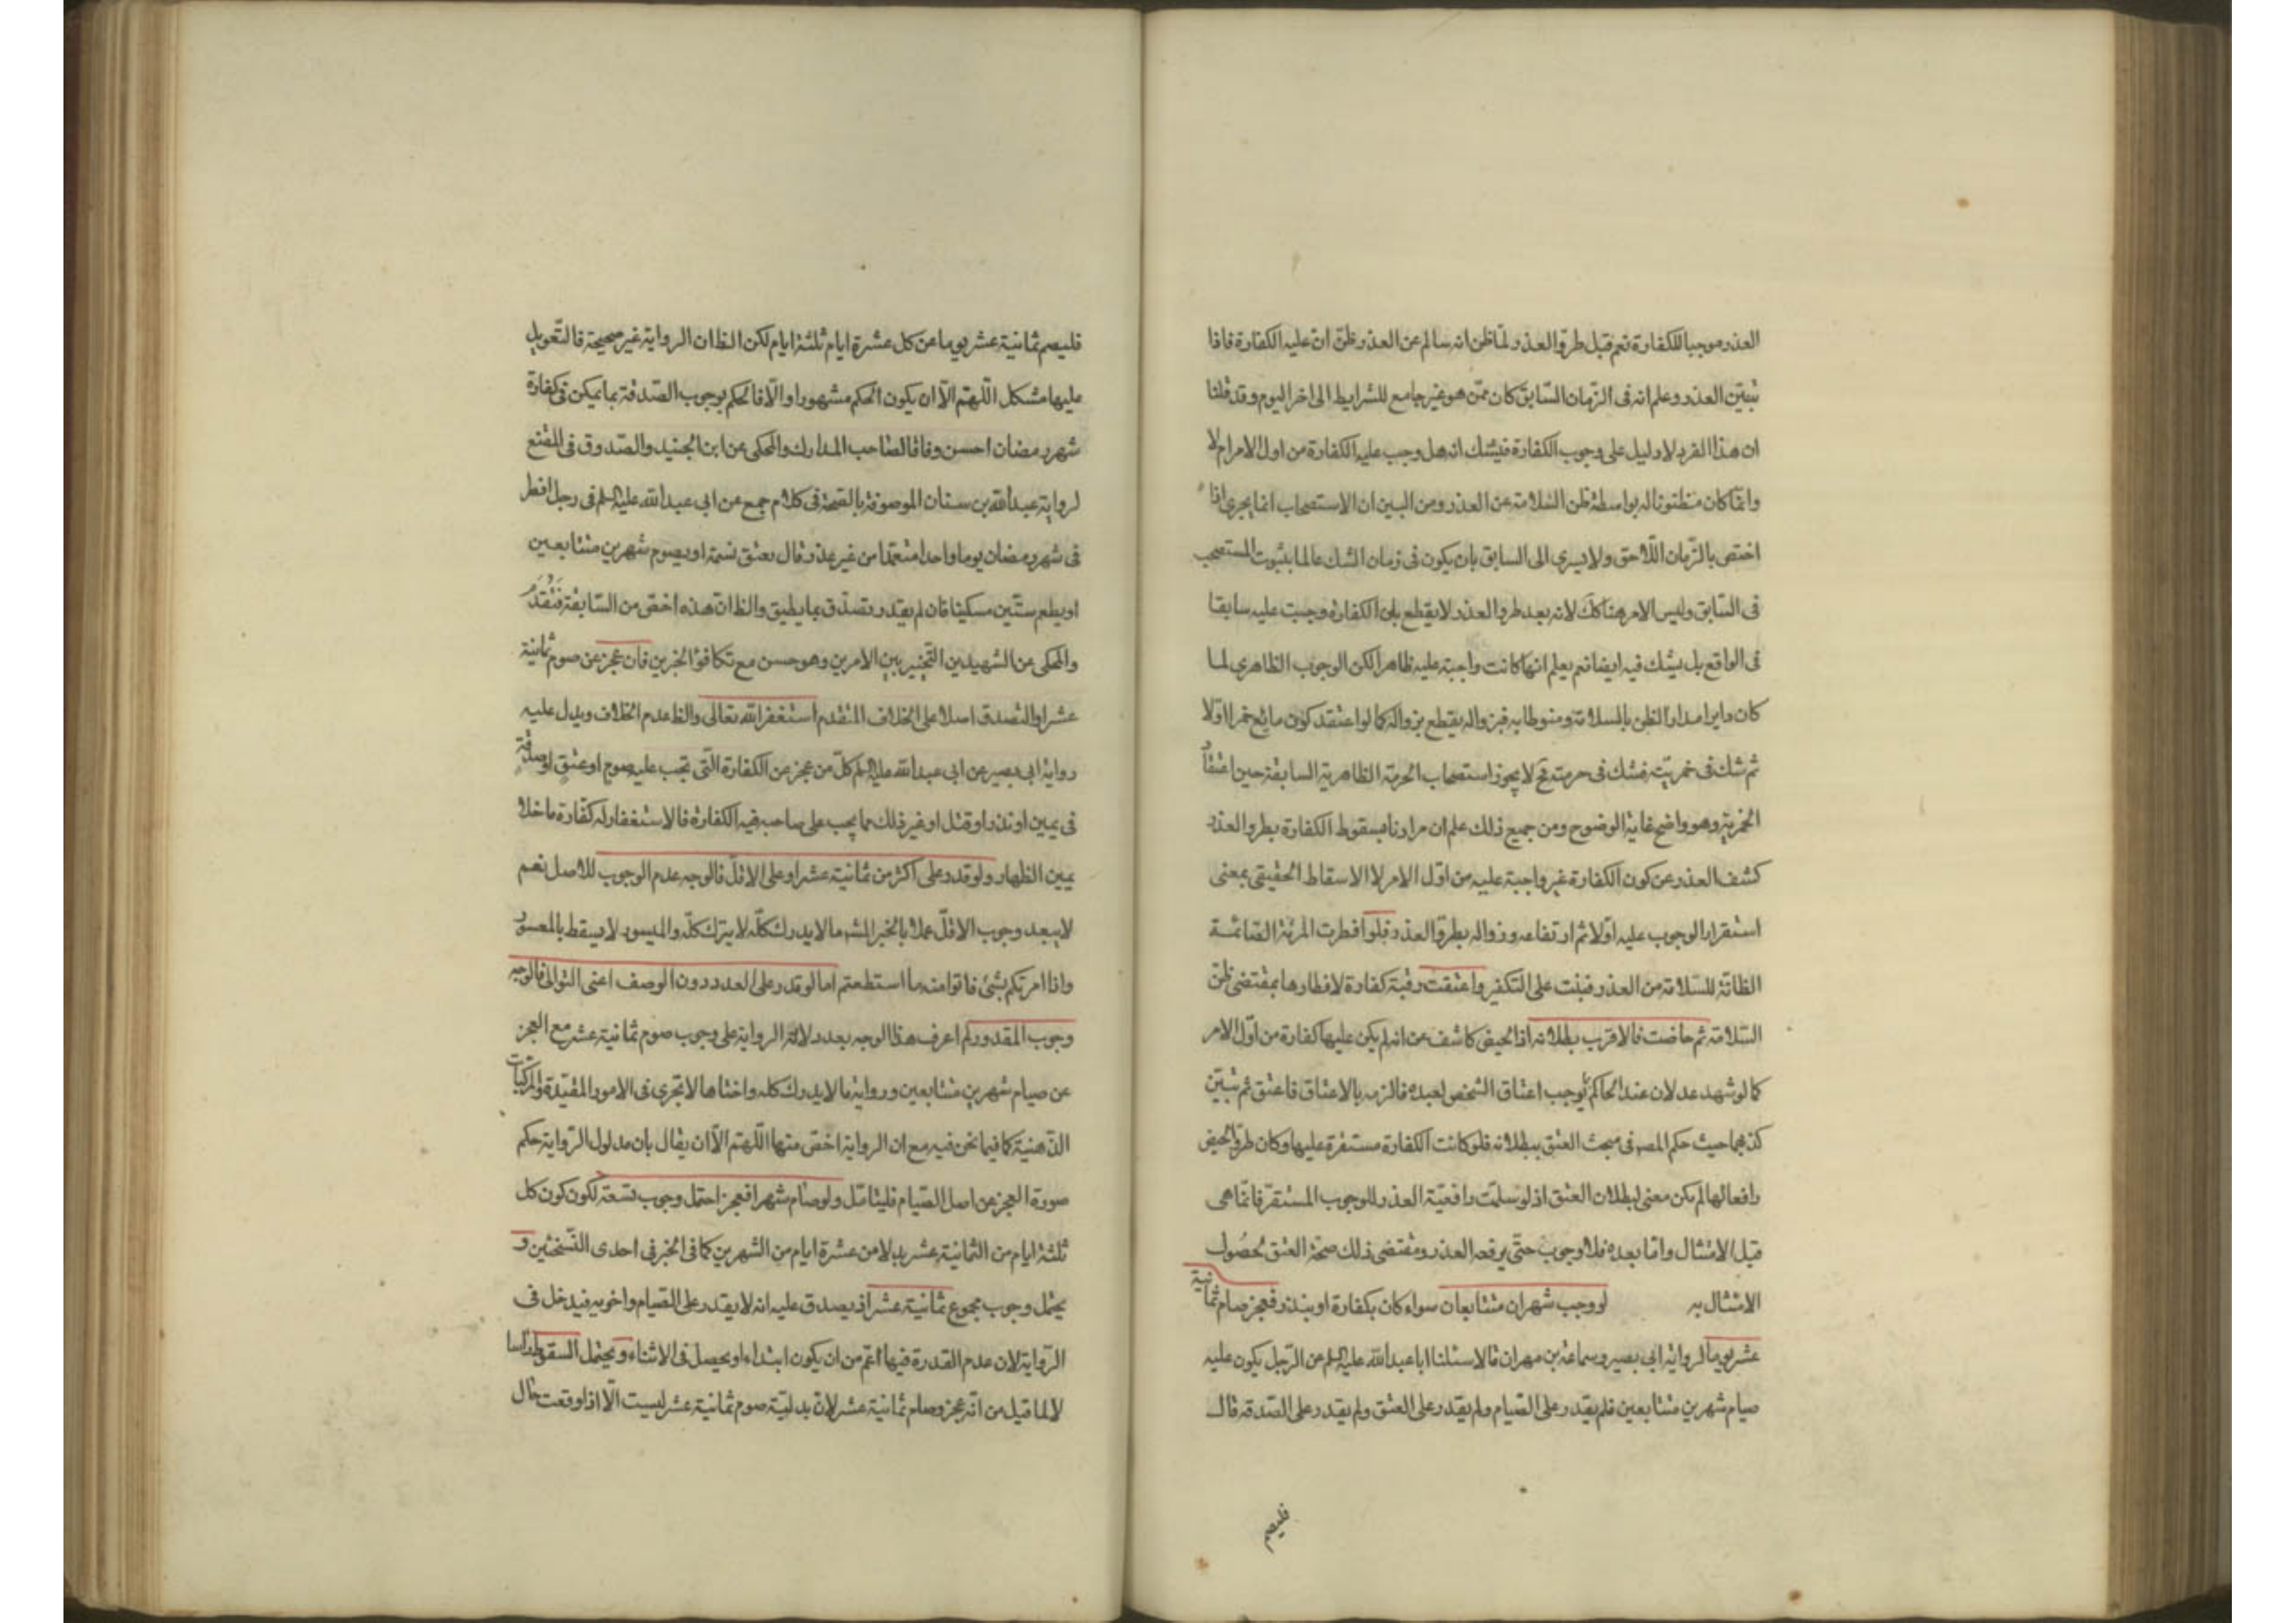 العذر موجبا للكفارة نعم قبل طروّ العذر ولمّا ظن انه سالم عن العذر وظنّ انّ عليه الكفارة فاذا
تبيّن العذر وعلم انه فى الزمان السّابق كان ممّن هو غير جامع للشرايط الى اخر اليوم وقد قلنا
ان هذا الفرد لا دليل على وجوب الكفارة فيشك انه هل وجب عليه الكفارة من اول الامر ام لا
وانّما كان مظنونا له بواسطة ظن السّلامة عن العذر ومن البين ان الاستصحاب انما يجرى اذا
اختص بالزّمان اللّاحق ولا يسرى الى السابق بان يكون فى زمان الشك عالما بثبوت المستصحب
فى السّابق وليس الامر هنا كك لانه بعد طرو العذر لا يقطع بان الكفارة وجبت عليه سابقا
فى الواقع بل يشك فيه ايضا نعم يعلم انها كانت واجبة عليه ظاهرا لكن الوجوب الظاهرى لما
كان دايرا مدار الظن بالسلامة ومنوطا به فبزواله يقطع بزواله كما لو اعتقد كون مايع خمرا اوّلا
ثم شك فى خمريّته فشك فى حرمته فح لا يجوز استصحاب الحرمة الظاهرية السابقة حين اعتقاد
الخمرية وهو واضح غاية الوضوح ومن جميع ذلك علم ان مرادنا بسقوط الكفارة بطرو العذر
كشف العذر عن كون الكفارة غير واجبة عليه من اوّل الامر لا الاسقاط الحقيقى بمعنى
استقرار الوجوب عليه اوّلا ثم ارتفاعه وزواله بطروّ العذر فلو افطرت المرئة الصائمة
الظانّة للسّلامة من العذر فبنت على التكفير واعتقت رقبة كفارة لافطارها بمقتضى ظنّ
السّلامة ثم حاضت فالاقرب بطلانه اذ الحيض كاشف عن انه لم يكن عليها كفارة من اوّل الامر
كما لو شهد عدلان عند الحاكم بوجب اعتاق الشخص لعبده فالزمه بالاعتاق فاعتق ثم تبيّن
كذبهما حيث حكم المصه فى مبحث العتق ببطلانه فلو كانت الكفارة مستقرة عليها وكان طروّ الحيض
رافعا لها لم يكن معنى لبطلان العتق اذ لو سلمت رافعيّة العذر للوجوب المستقرّ فانّما هى
قبل الامتثال وامّا بعده فلا وجوب حتّى يرفعه العذر ومقتضى ذلك صحّة العتق لحصول
الامتثال به لو وجب شهران متتابعان سواء كان بكفارة او بنذر فعجز صام ثمانية
عشر يوما لرواية ابى بصير وسماعة بن مهران قالا سئلنا ابا عبد الله عليه‌السلم عن الرّجل يكون عليه
صيام شهرين متتابعين فلم يقدر على الصّيام ولم يقدر على العتق ولم يقدر على الصّدقه قال
فليصم
فليصم ثمانية عشر يوما عن كل عشرة ايام ثلثة ايام لكن الظ ان الرواية غير صحيحة فالتّعويل
عليها مشكل اللّهمّ الّا ان يكون الحكم مشهورا والّا فالحكم بوجوب الصّدقة بما يمكن فى كفارة
شهر رمضان احسن وفاقا لصاحب المدارك والمحكى عن ابن الجنيد والصّدوق فى المقنع
لرواية عبد الله بن سنان الموصوفة بالصّحة فى كلام جمع عن ابى عبد الله عليه‌السلم فى رجل افطر
فى شهر رمضان يوما واحدا متعمّدا من غير عذر قال يعتق نسمة او يصوم شهرين متتابعين
او يطعم ستّين مسكينا فان لم يقدر تصدّق بما يطيق والظ انّ هذه اخصّ من السّابقة فتُقدَّم
والمحكى عن الشهيدين التّخيير بين الامرين وهو حسن مع تكافؤ الخبرين فان عجز عن صوم ثمانية
عشر او التصدق اصلا على الخلاف المتقدم استغفر الله تعالى والظ عدم الخلاف ويدل عليه
رواية ابى بصير عن ابى عبد الله عليه‌السلم كلّ من عجز عن الكفارة الّتى تجب عليه صوم او عتق او صدقة
فى يمين او نذر او قتل او غير ذلك مما يجب على صاحبه فيه الكفارة فالاستغفار له كفّارة ما خلا
يمين الظهار ولو قدر على اكثر من ثمانية عشر او على الاقلّ فالوجه عدم الوجوب للاصل نعم
لا يبعد وجوب الاقلّ عملا بالخبر المشهـ ما لا يدرك كلّه لا يترك كلّه والميسور لا يسقط بالمعسور
واذا امرتكم بشئ فاتوا منه ما استطعتم اما لو قدر على العدد دون الوصف اعنى التوالى فالوجه
وجوب المقدور لم اعرف هذا الوجه بعد دلالة الرواية على وجوب صوم ثمانية عشر مع العجز
عن صيام شهرين متتابعين ورواية ما لا يدرك كله واختاها لا تجرى فى الامور المقيّدة والمركبات
الذّهنيّة كما فيما نحن فيه مع ان الرواية اخصّ منها اللّهمّ الّا ان يقال بان مدلول الرّواية حكم
صورة العجز عن اصل الصّيام فليتامّل ولو صام شهرا فعجز احتمل وجوب تسعة لكون كل
ثلثة ايام من الثمانية عشر بدلا من عشرة ايام من الشهرين كما فى الخبر فى احدى النّسختين و
يحتمل وجوب مجموع ثمانية عشر اذ يصدق عليه انه لا يقدر على الصّيام واخويه فيدخل فى
الرّواية لان عدم القدرة فيها اعمّ من ان يكون ابتداء او يحصل فى الاثناء ويحتمل السقوط راسا
لا لما قيل من انّه عجز وصام ثمانية عشر لانّ بدليّة صوم ثمانية عشر ليست الّا اذا وقعت حال